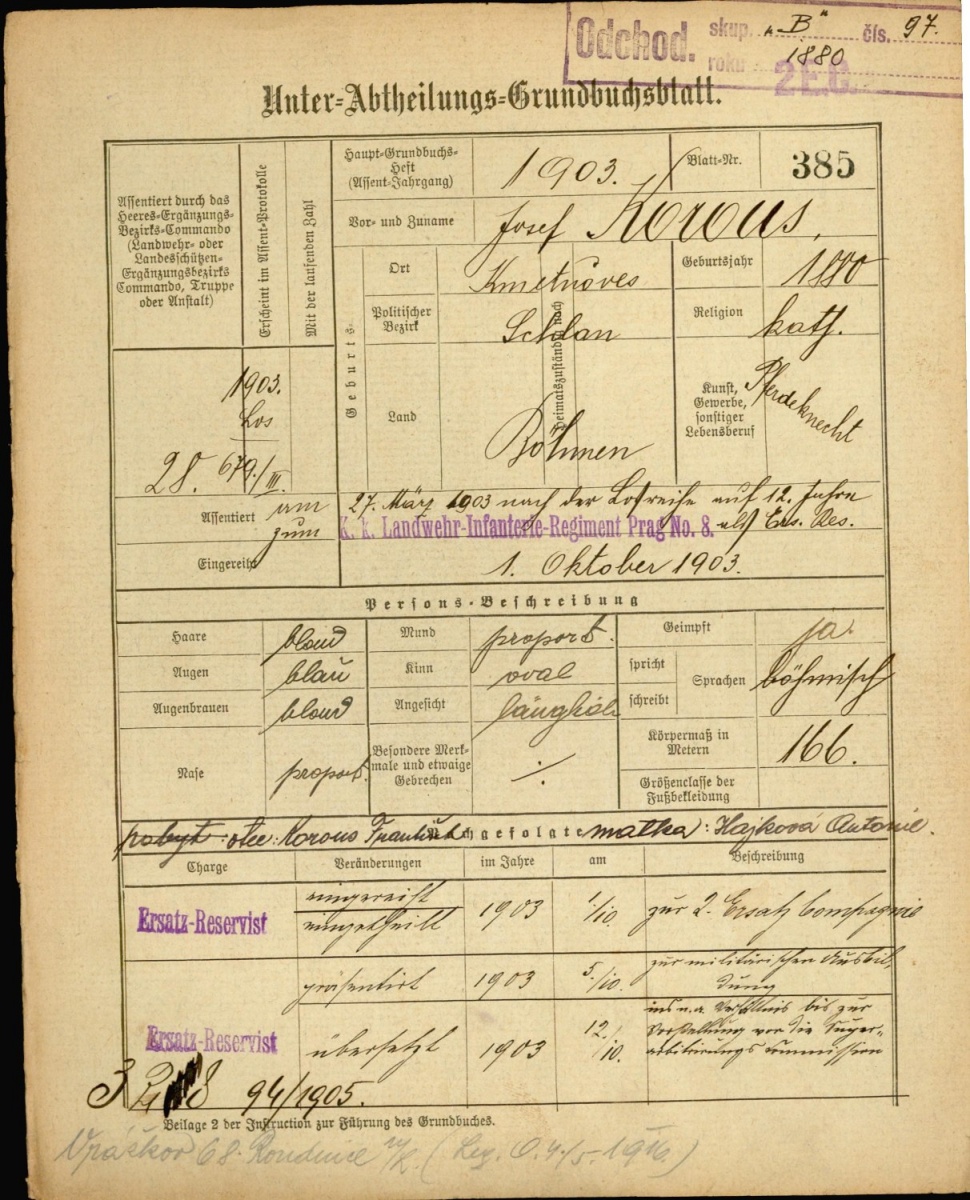 Odchod. skup. „B“ čís. 97.
roku 1880
2 E.G.
Unter-Abtheilungs-Grundbuchsblatt.
Assentiert durch das Heeres-Ergänzungs-Bezirks-Commando (Landwehr- oder Landesschützen-Ergänzungsbezirks Commando, Truppe oder Anstalt)
Erscheint im Assent-Protokolle
Mit der laufenden Zahl
1903.
Los
28. 679/III.
Haupt-Grundbuchs-Heft (Assent-Jahrgang) 1903. Blatt-Nr. 385
Vor- und Zuname Josef Korous,
Geburts-
Ort Kmetnoves
Politischer Bezirk Schlan
Land Böhmen
Heimatszuständig nach
Geburtsjahr 1880
Religion kath.
Kunst, Gewerbe, sonstiger Lebensberuf Pferdeknecht
Assentiert am 27. März 1903 nach der Losreihe auf 12. Jahre
zum K. k. Landwehr-Infanterie-Regiment Prag No. 8. als Ers. Res.
Eingereiht 1. Oktober 1903.
Persons-Beschreibung
Haare blond Mund proport. Geimpft ja.
Augen blau Kinn oval spricht schreibt Sprachen böhmisch
Augenbrauen blond Angesicht länglich
Nase proport. Besondere Merkmale und etwaige Gebrechen ./. Körpermaß in Metern 166.
Größenclasse der Fußbekleidung
pobyt: otec: Korous František matka: Hajková Antonie.
Charge Veränderungen im Jahre am Beschreibung
Ersatz-Reservist eingereiht 1903 1/10. zur 2. Ersatz Compagnie
eingetheilt
präsentirt 1903 5./10. zur militärischen Ausbildung
Ersatz-Reservist übersetzt 1903 12./10. ins n.a. Verhältnis bis zur
Vorstellung vor die Super-
arbitrirungs Commission
94/1905.
Beilage 2 der Instruction zur Führung des Grundbuches.
68. Roudnice n/L. (Leg. O. 4/5. 1916.)